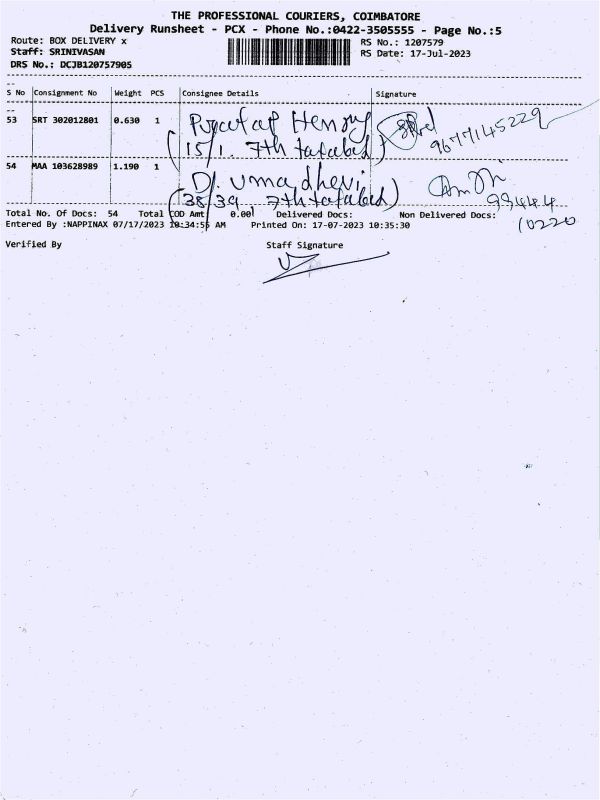 THE PROFESSIONAL COURIERS, COIMBATORE
Delivery Runsheet - PCX - Phone No.:0422-3505555 - Page No.:5
Route: BOX DELIVERY x
RS No.: 1207579
Staff: SRINIVASAN
RS Date: 17-Jul-2023
DRS No.: DCJB120757905
S No Consignment No Weight PCS Consignee Details Signature
53 SRT 302012801 0.630 1
15/1. 7th tatabad) 9677145229
54 MAA 103628989 1.190 1 D/. Uma dhevi
(38/39 7th tatabad) 99444
Total No. Of Docs: 54 Total COD Amt 0.00 Delivered Docs: Non Delivered Docs:
10220
Entered By :NAPPINAX 07/17/2023 10:34:56 AM Printed On: 17-07-2023 10:35:30
Verified By Staff Signature